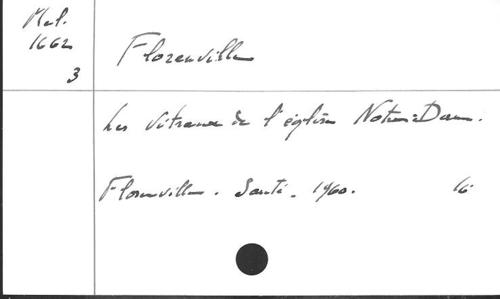 Mel.
1662
3
Florenville
Les vitraux de l'église Notre-Dame.
Florenville. Santi. 1960. 16